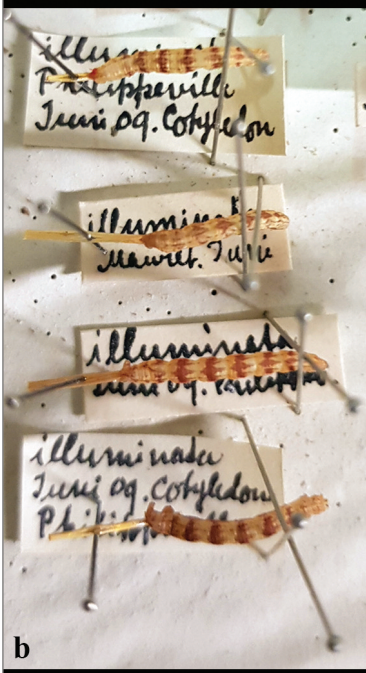 illuminata
Philippeville
Juni 09. Cotyledon
illuminata
Mauret. Juni
illuminata
Juni 09.
illuminata
Juni 09. Cotyledon
b